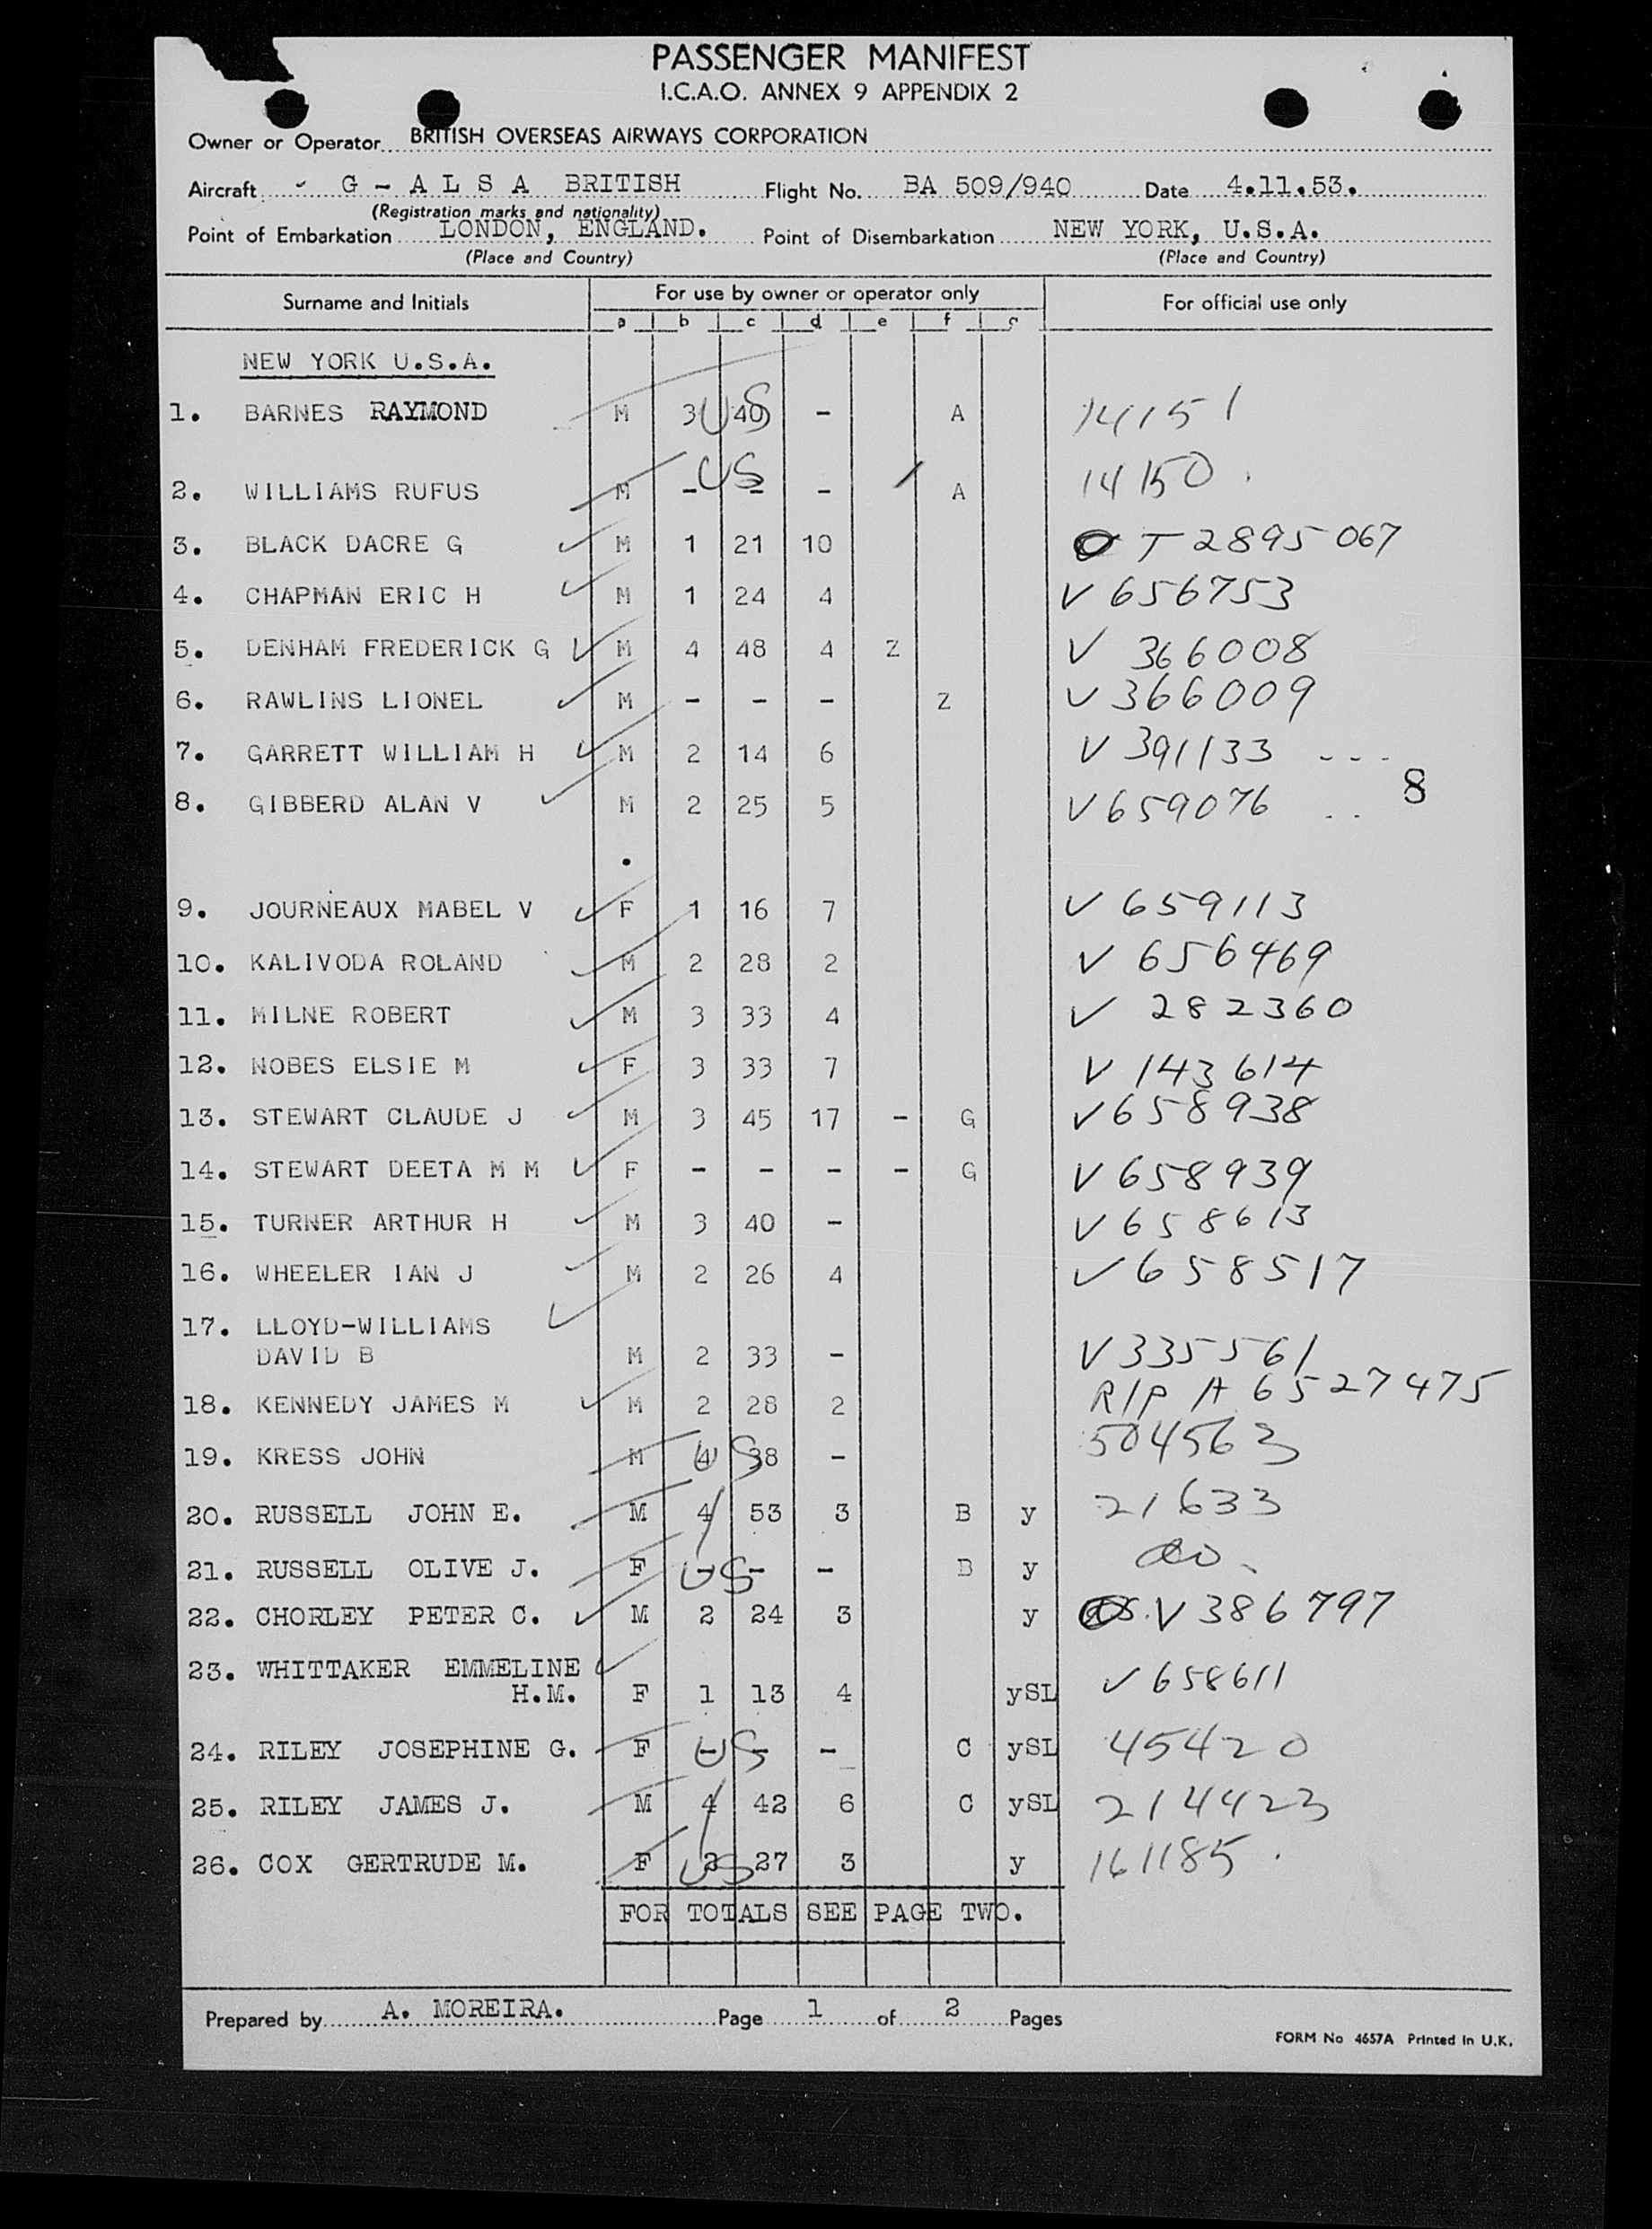 PASSENGER MANIFEST
I.C.A.O. ANNEX 9 APPENDIX 2
Owner or Operator BRITISH OVERSEAS AIRWAYS CORPORATION
Aircraft G - A L S A BRITISH Flight No. BA 509/940 Date 4.11.53.
(Registration marks and nationality)
Point of Embarkation LONDON, ENGLAND. Point of Disembarkation NEW YORK, U.S.A.
(Place and Country) (Place and Country)
Surname and Initials For use by owner or operator only For official use only
a b c d e f
NEW YORK U.S.A.
1. BARNES RAYMOND M 3 US 40 - A 14151
2. WILLIAMS RUFUS M - US - - A 14150.
3. BLACK DACRE G M 1 21 10 T 2895067
4. CHAPMAN ERIC H M 1 24 4 V 656753
5. DENHAM FREDERICK G M 4 48 4 Z V 366008
6. RAWLINS LIONEL M - - - Z V 366009
7. GARRETT WILLIAM H M 2 14 6 V 391133 - - -
8. GIBBERD ALAN V M 2 25 5 V 659076 8
9. JOURNEAUX MABEL V F 1 16 7 V 659113
10. KALIVODA ROLAND M 2 28 2 V 656469
11. MILNE ROBERT M 3 33 4 V 282360
12. NOBES ELSIE M F 3 33 7 V 143614
13. STEWART CLAUDE J M 3 45 17 - G V 658938
14. STEWART DEETA M M F - - - - G V 658939
15. TURNER ARTHUR H M 3 40 - V 658613
16. WHEELER IAN J M 2 26 4 V 658517
17. LLOYD-WILLIAMS
DAVID B M 2 33 - V 335561
18. KENNEDY JAMES M M 2 28 2 R/P A 6527475
19. KRESS JOHN M 4 US 38 - 504563
20. RUSSELL JOHN E. M 4 53 3 B y 21633
21. RUSSELL OLIVE J. F - US - - B y do
22. CHORLEY PETER C. M 2 24 3 y V 386797
23. WHITTAKER EMMELINE
H.M. F 1 13 4 ySL V 658611
24. RILEY JOSEPHINE G. F - US - - C ySL 45420
25. RILEY JAMES J. M 4 42 6 C ySL 214423
26. COX GERTRUDE M. F US 27 3 y 161185.
FOR TOTALS SEE PAGE TWO.
Prepared by A. MOREIRA. Page 1 of 2 Pages
FORM No 4657A Printed in U.K.